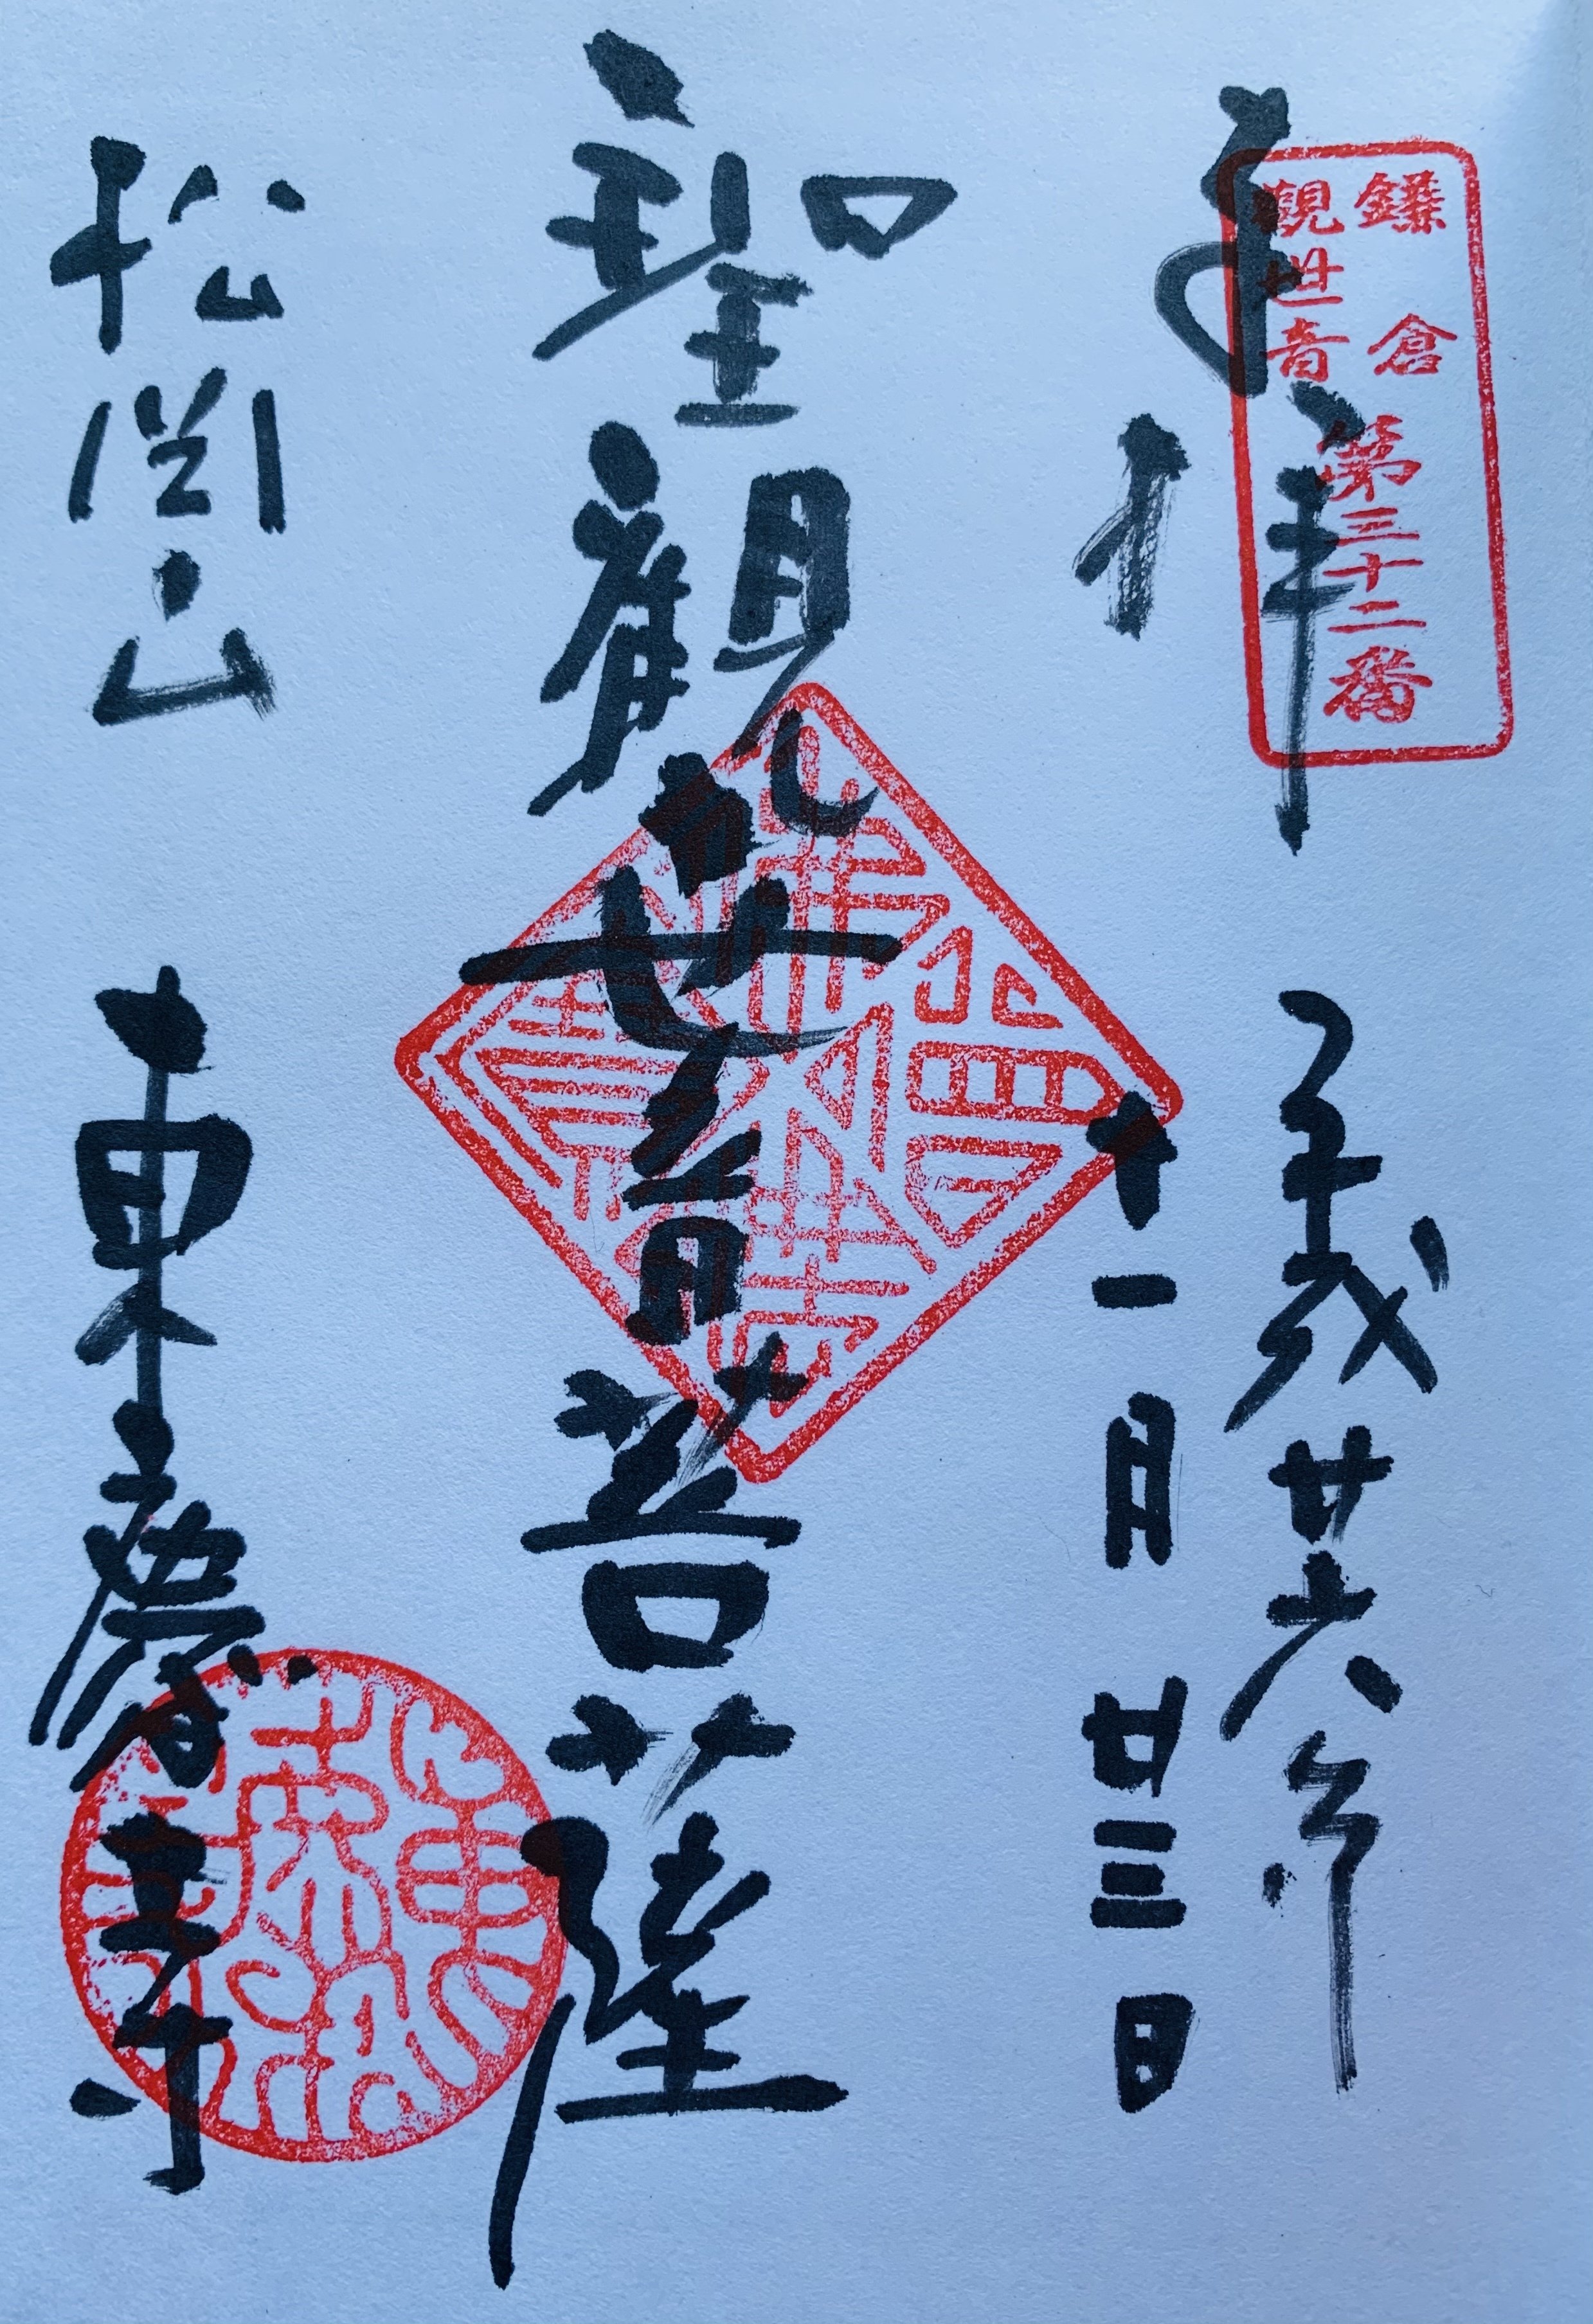 奉拝
鎌倉
觀世音
第三十二番
平成廿六年
十一月廿三日
聖観世音菩薩
松岡山
東慶寺